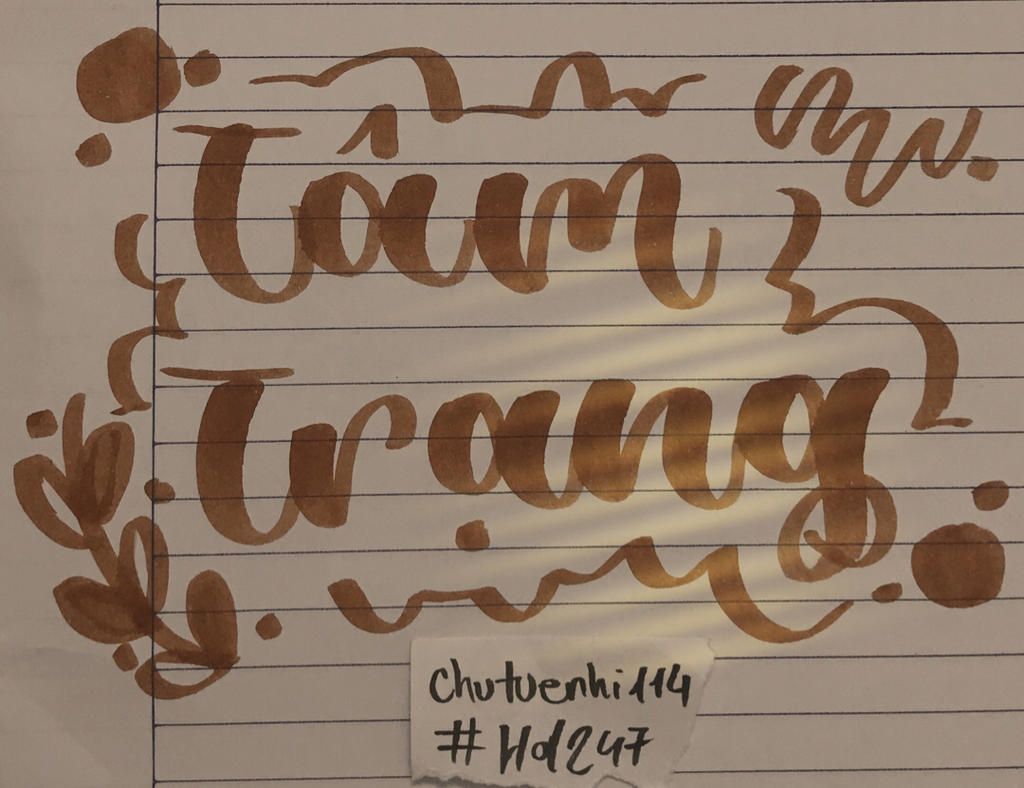 tâm
trạng
chutuenhi114
#Hd247